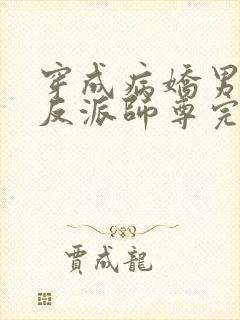 穿成病嬌男
反派師尊完
賈成龍